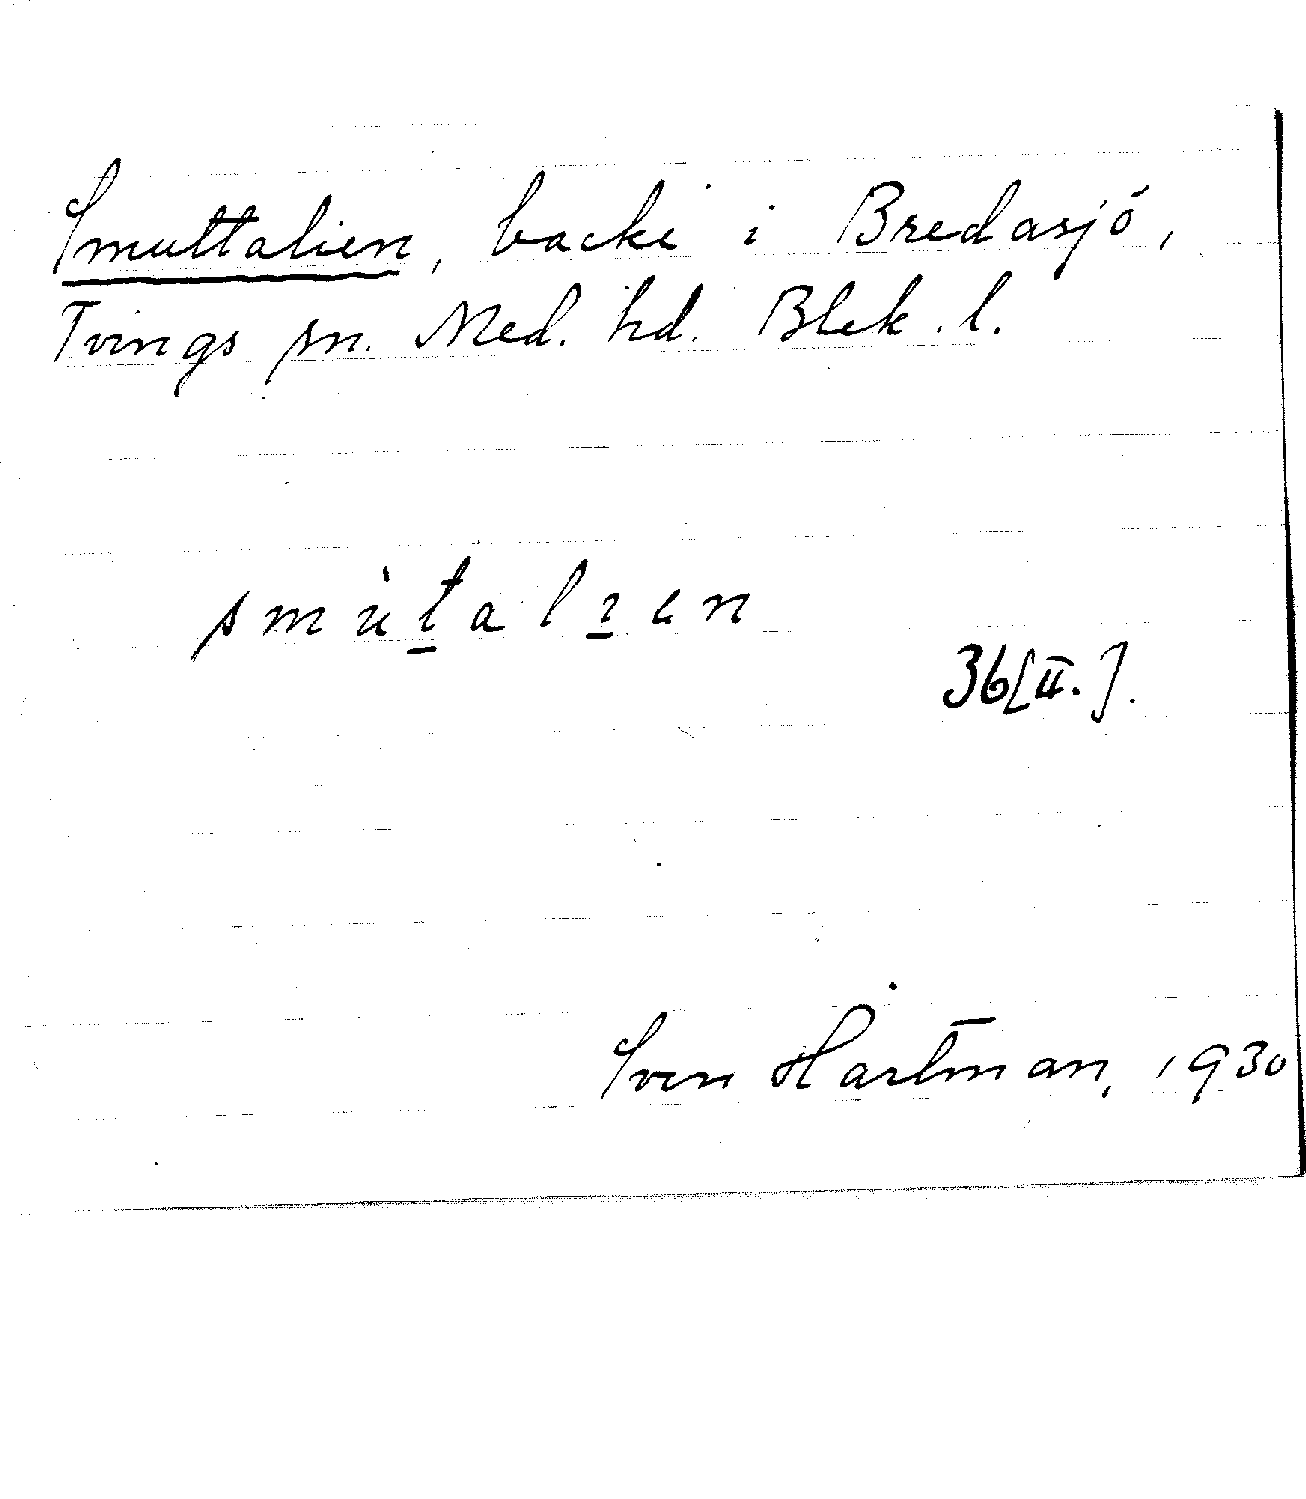 Smuttalien, backe i Bredasjö,
Tvings sn. Med. hd. Blek. l.
smùt̠alı̠en
36[II.].
Sven Hartman, 1930